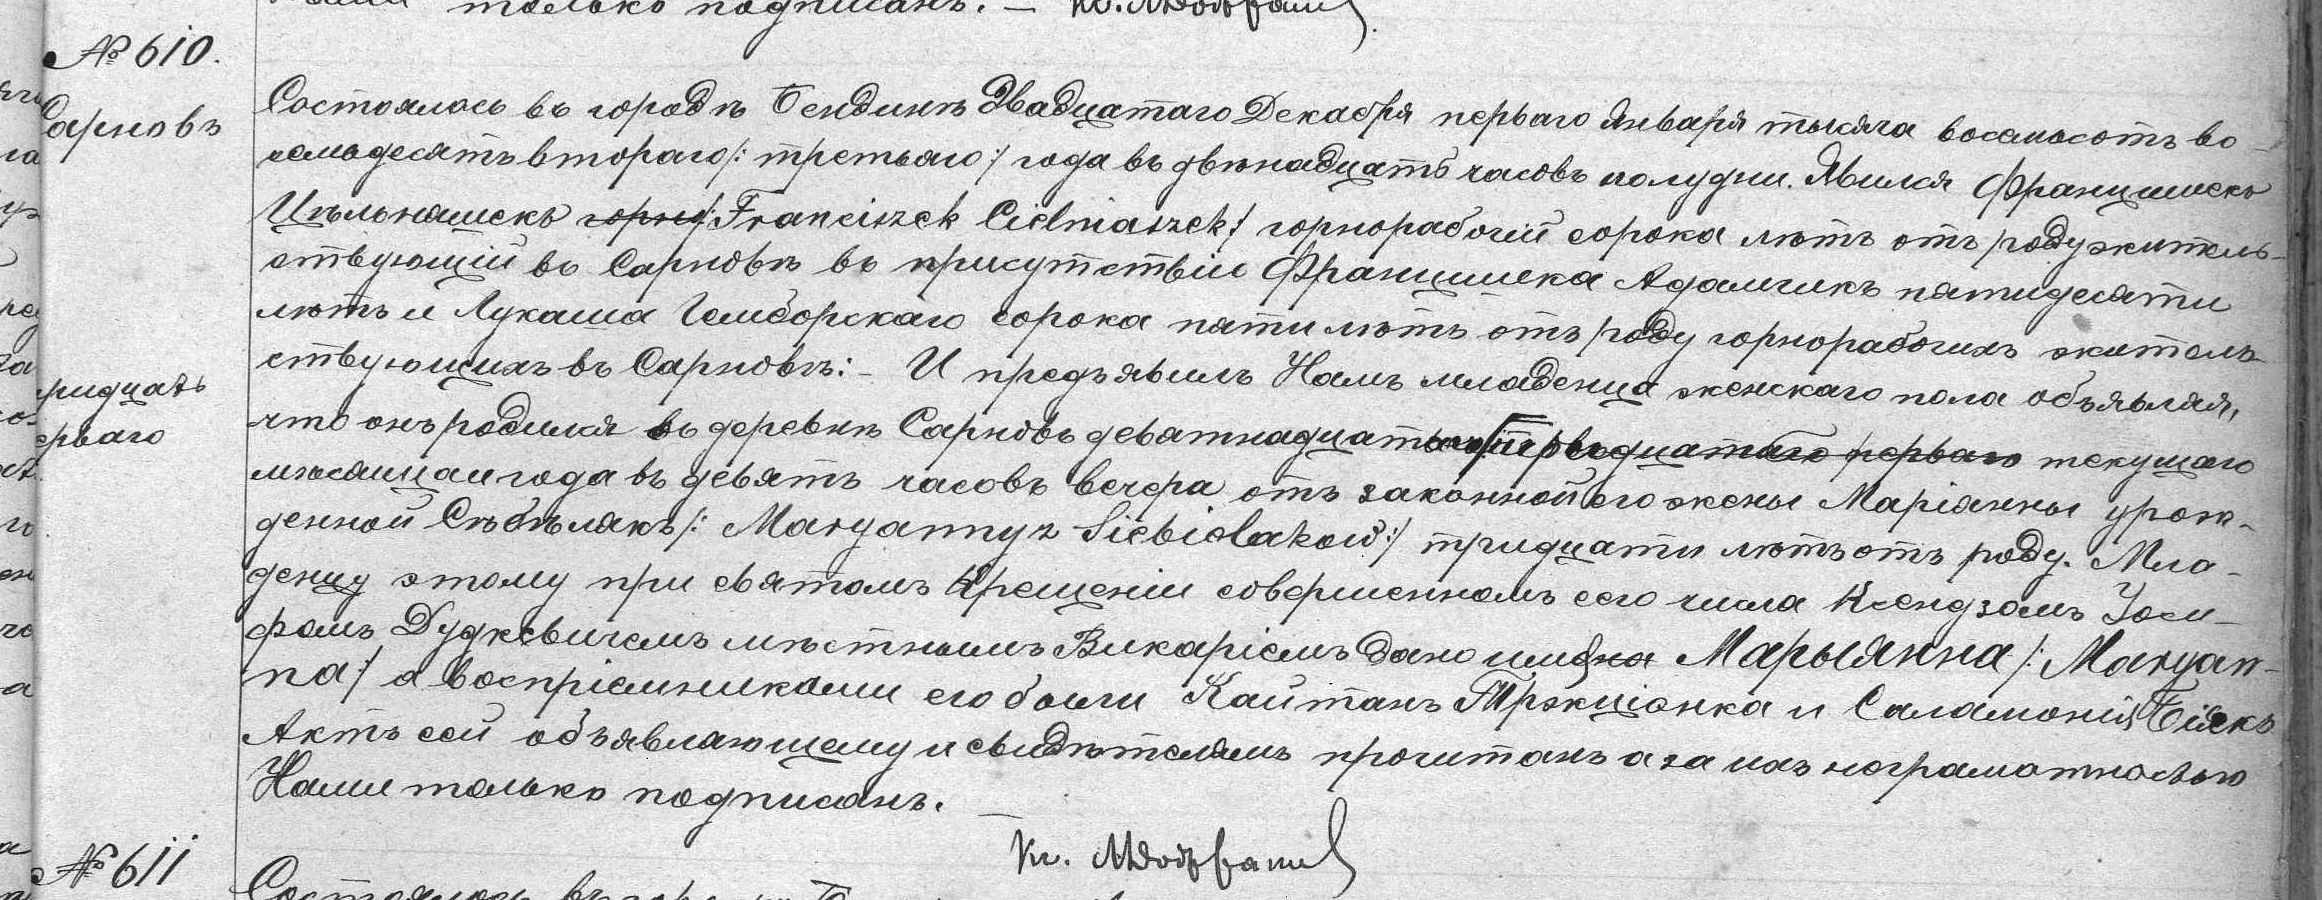 только подписанъ. —
№ 610.
Сарновъ
Состоялось въ городѣ Бендинѣ Двадцатаго Декабря перваго Января тысяча восемьсотъ во-
семьдесятъ втораго /: третьяго :/ года въ двѣнадцать часовъ полудни. Явился Францишекъ
Цѣльняшекъ горно /: Franciszek Cielniaszek :/ горнорабочій сорока лѣтъ отъ роду житель-
ствующій въ Сарновѣ въ присутствіи Францишека Адамчикъ пятидесяти
лѣтъ и Лукаша Гемборскаго сорока пяти лѣтъ отъ роду горнорабочихъ житель-
ствующихъ въ Сарновѣ: - И предъявилъ Намъ младенца женскаго пола объявляя,
ридцать
что онъ родился въ деревнѣ Сарновъ девятнадцатаго перваго текущаго
ерваго
мѣсяца и года въ девять часовъ вечера отъ законной его жены Маріянны урож-
денной Сѣбѣлякъ /: Maryanny z Siebielaków :/ тридцати лѣтъ отъ роду. Мла-
денцу этому при святомъ Крещеніи совершенномъ сего числа Ксендзомъ Іоси-
фомъ Дудкевичемъ мѣстнымъ Викаріемъ дано имя Марыянна /: Maryan-
na :/ а воспріемниками его были Каитанъ Тржціонка и Саламонія Біякъ
Актъ сей объявляющему и свидѣтелямъ прочитанъ а за ихъ неграмотностью
Нами только подписанъ.
№ 611
Состоялось въ городѣ